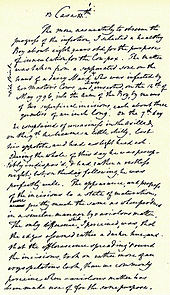 Case th
The more accurately to observe the
progress of the infection, I selected a healthy
Boy about eight years old for the purpose
of inoculation for the Cow Pox. The matter
was taken from a suppurated sore on the
hand of a dairy Maid who was infected by
her masters Cows and inserted on the 14th of
May 1796 into the arm of the Boy by means
of two superficial incisions, each about three
quarters of an inch long. On the 7th day
he complained of uneasiness in the axilla &
on the 9th he became a little chilly, lost
his appetite and had a slight head-ach.
During the whole of this day he was percep-
tibly indisposed, & had rather a restless
night; but on the day following he was
perfectly well. The appearance and progress
to a state of maturation
were pretty much the same as when produced
in a similar manner by variolous matter.
The only difference I perceived was that
the edges assumed rather a darker hue, and
that the efflorescence spreading round
the incisions, took on rather more of an
erysipelatous look, than we commonly
perceive when variolous matter has
been made use of for the same purpose.